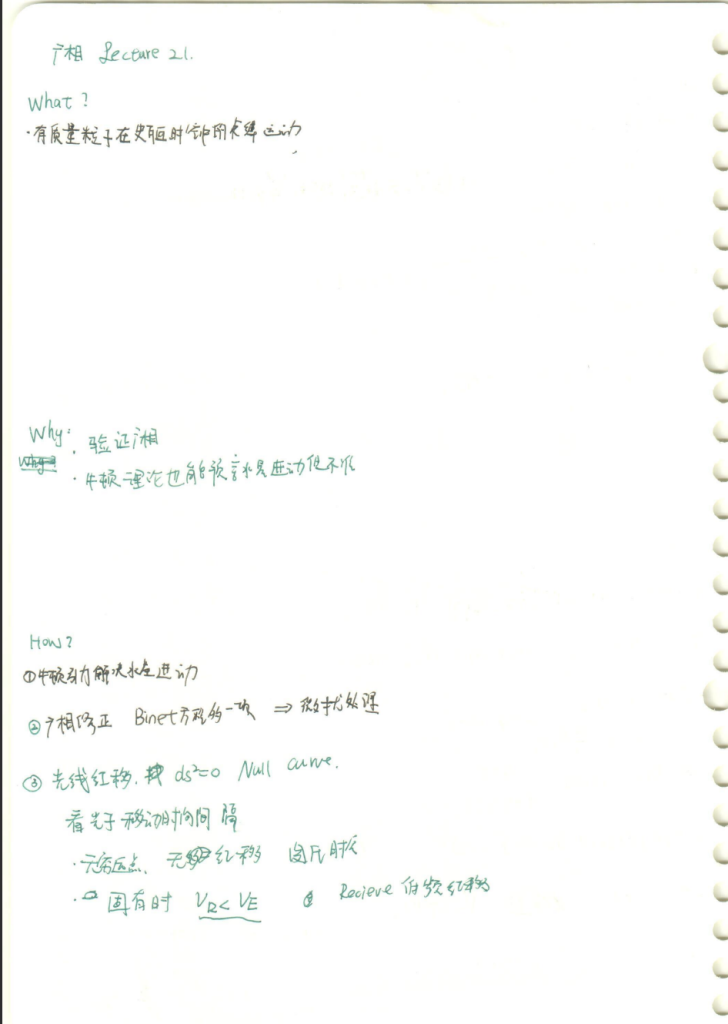 广相 Lecture 21.
What?
·有质量粒子在史瓦时空的运动
Why:
· 验证广相
· 牛顿理论也能预言水星进动但不准
How?
①牛顿引力解决水星进动
②广相修正 Binet方程多一项 ⇒ 微扰处理
③ 光线红移. ds²=0 Null curve.
看光子移动时间间隔
·无穷远点、无红移
· 固有时 V_R < V_E Recieve 红移